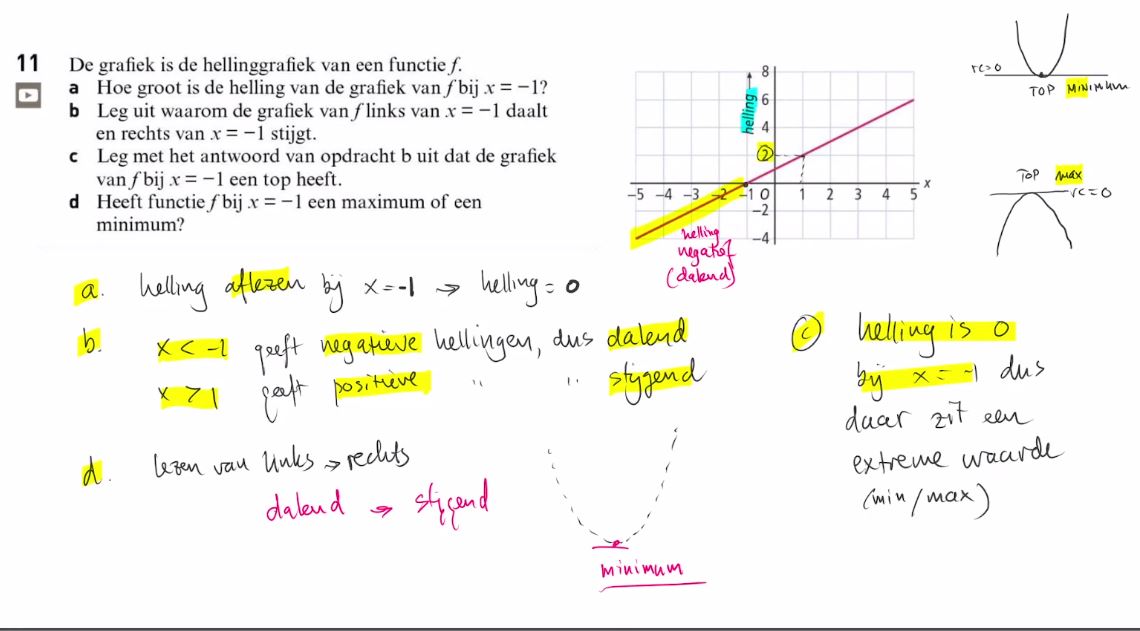 11 De grafiek is de hellinggrafiek van een functie f.
a Hoe groot is de helling van de grafiek van f bij x = −1?
b Leg uit waarom de grafiek van f links van x = −1 daalt
en rechts van x = −1 stijgt.
c Leg met het antwoord van opdracht b uit dat de grafiek
van f bij x = −1 een top heeft.
d Heeft functie f bij x = −1 een maximum of een
minimum?
helling
8
6
4
2
−5 −4 −3 −2 −1 O 1 2 3 4 5 x
−2
−4
helling
negatief
(dalend)
rc=0
TOP MINIMUM
TOP max
rc=0
a. helling aflezen bij x=-1 → helling = 0
b. x < -1 geeft negatieve hellingen, dus dalend
x > 1 geeft positieve " " stijgend
c helling is 0
bij x = -1 dus
daar zit een
extreme waarde
(min/max)
d. lezen van links → rechts
dalend → stijgend
minimum